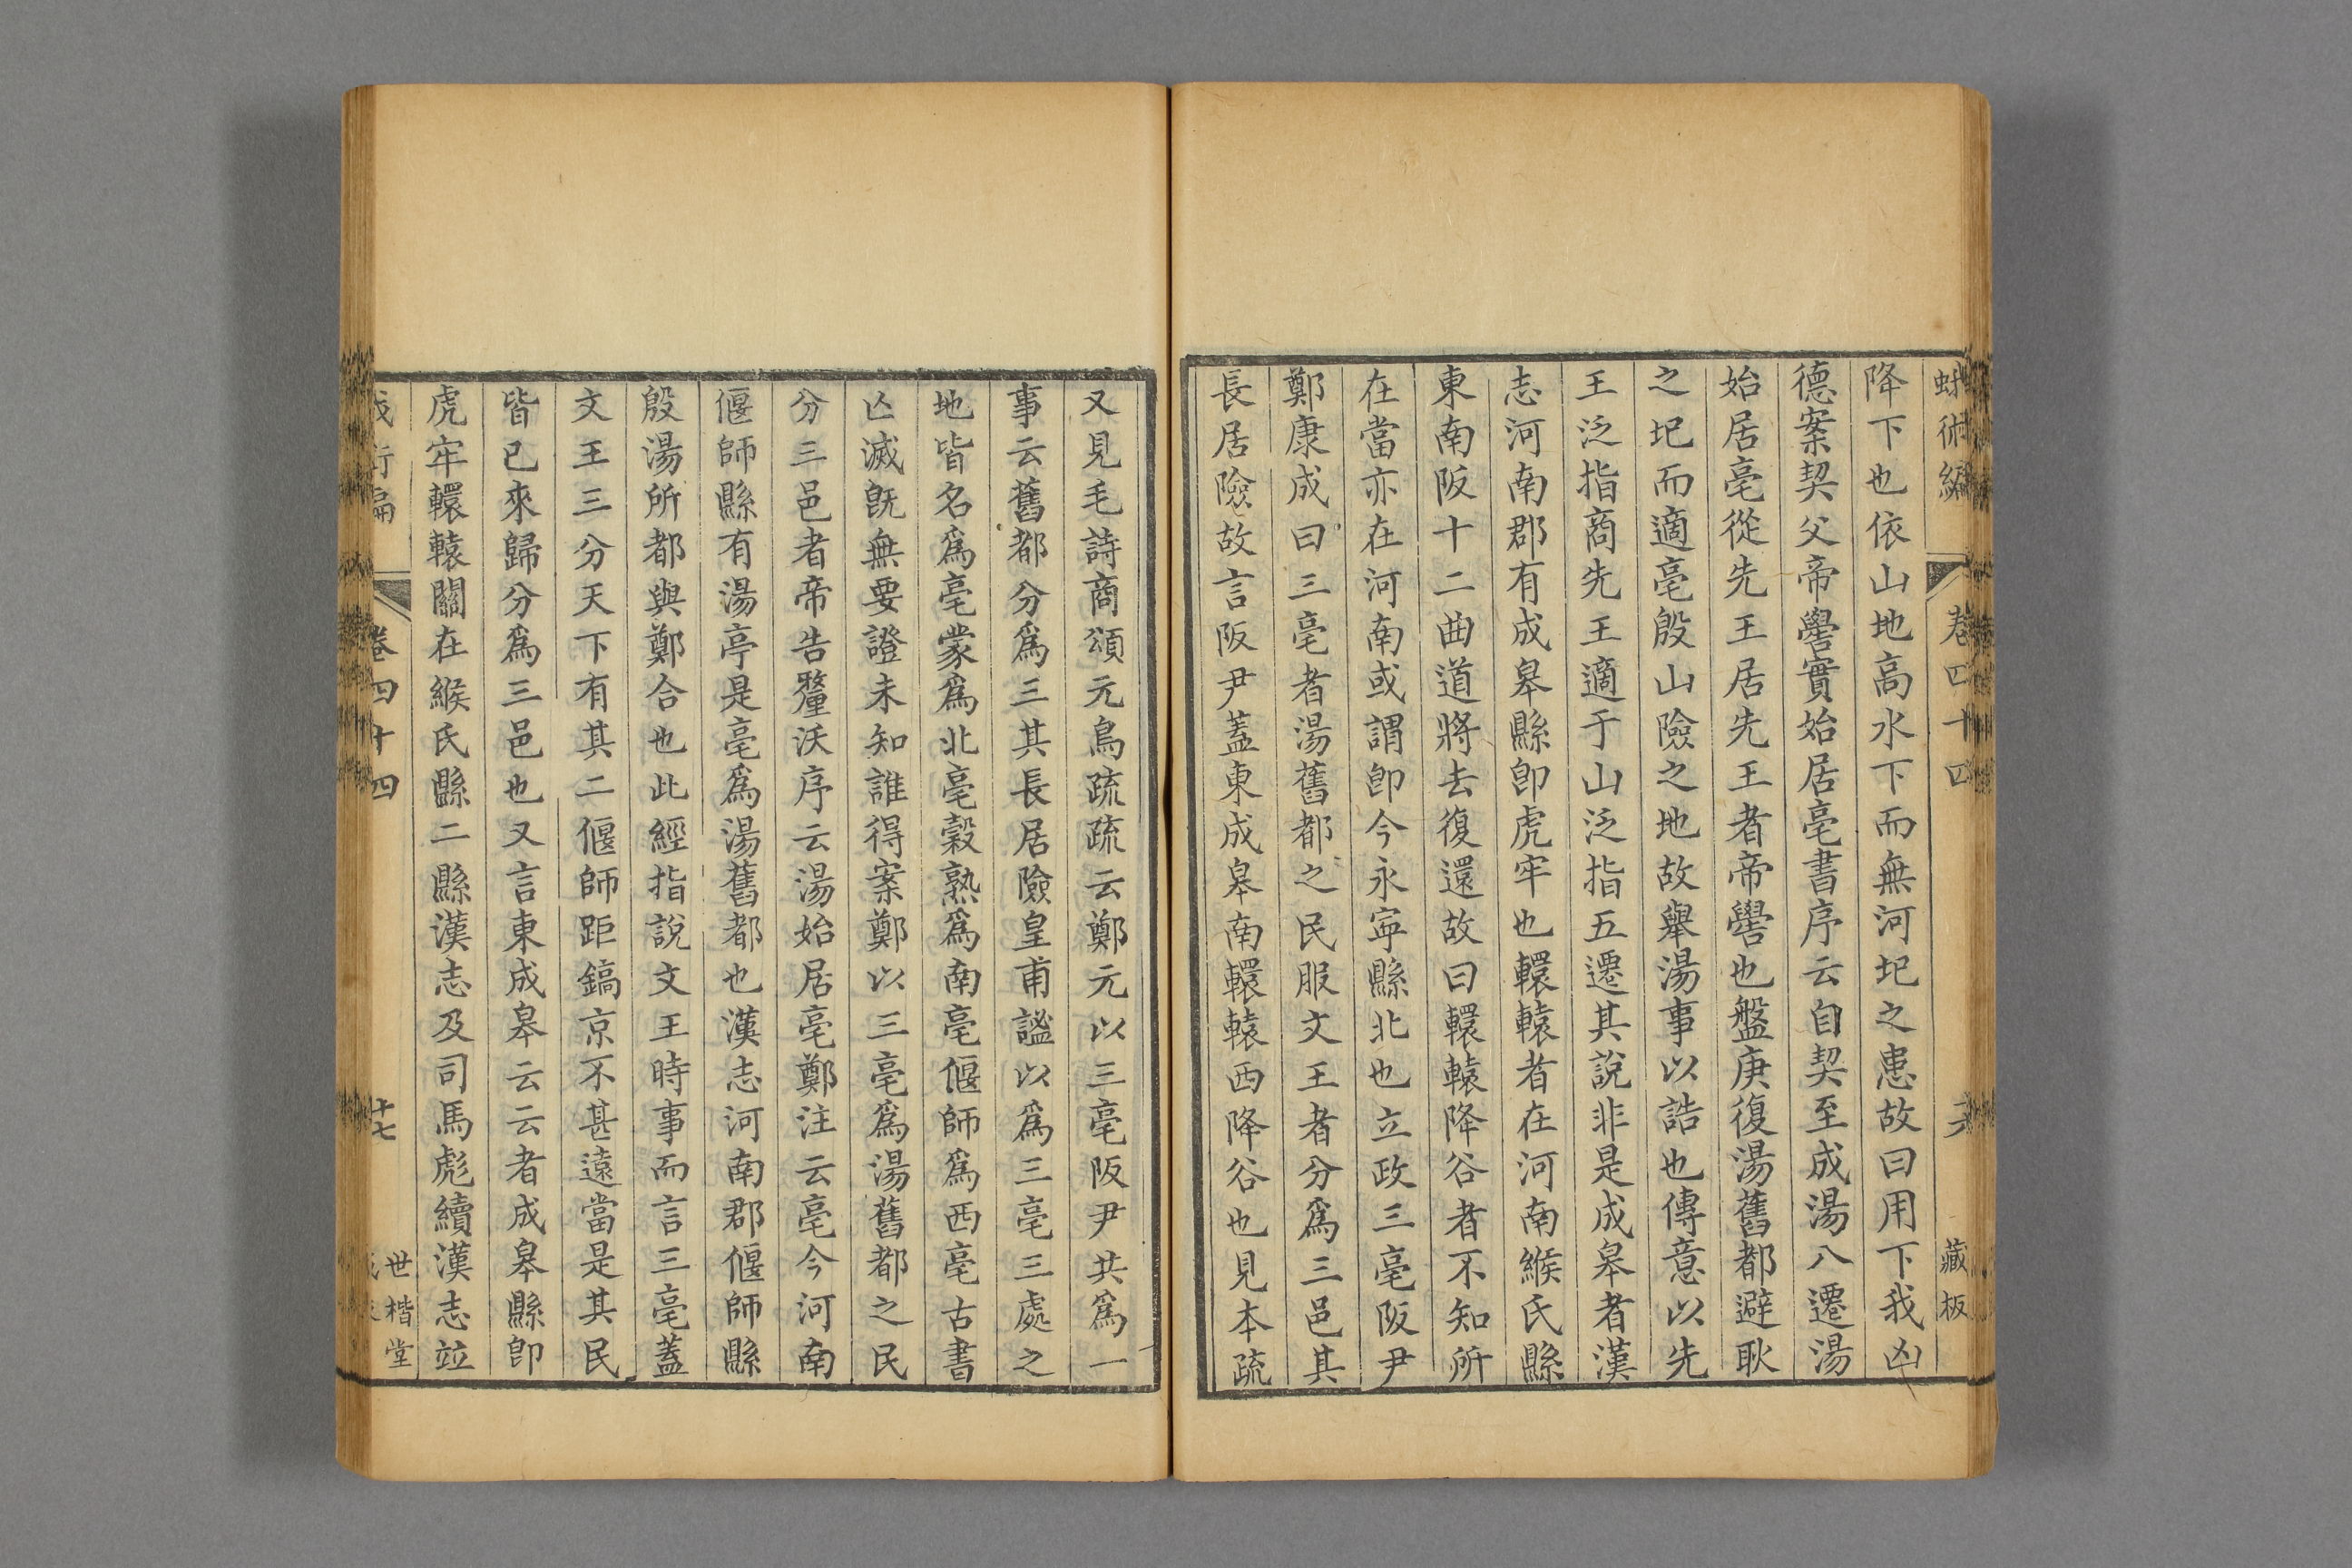 蛾術編
卷四十四
藏板
降下也依山地高水下而無河圯之患故曰用下我凶
德案契父帝嚳實始居亳書序云自契至成湯八遷湯
始居亳從先王居先王者帝嚳也盤庚復湯舊都避耿
之圯而適亳殷山險之地故舉湯事以誥也傳意以先
王泛指商先王適于山泛指五遷其說非是成皋者漢
志河南郡有成皋縣卽虎牢也轘轅者在河南緱氏縣
東南阪十二曲道將去復還故曰轘轅降谷者不知所
在當亦在河南或謂卽今永寧縣北也立政三亳阪尹
鄭康成曰三亳者湯舊都之民服文王者分爲三邑其
長居險故言阪尹蓋東成皋南轘轅西降谷也見本疏
又見毛詩商頌元鳥疏疏云鄭元以三亳阪尹共爲一
事云舊都分爲三其長居險皇甫謐以爲三亳三處之
地皆名爲亳蒙爲北亳穀熟爲南亳偃師爲西亳古書
亾滅旣無要證未知誰得案鄭以三亳爲湯舊都之民
分三邑者帝告釐沃序云湯始居亳鄭注云亳今河南
偃師縣有湯亭是亳爲湯舊都也漢志河南郡偃師縣
殷湯所都與鄭合也此經指說文王時事而言三亳蓋
文王三分天下有其二偃師距鎬京不甚遠當是其民
皆已來歸分爲三邑也又言東成皋云云者成皋縣卽
虎牢轘轅關在緱氏縣二縣漢志及司馬彪續漢志竝
卷四十四
十七
世楷堂